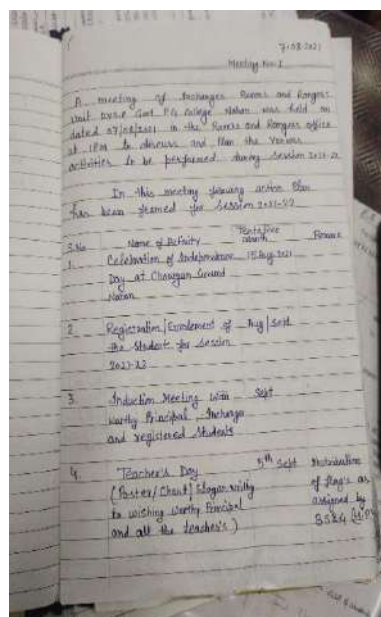 7-08-2021
Meeting No. 1
A meeting of Incharges Rovers and Rangers
Unit Govt P.G College Nahan was held on
dated 07/08/2021 in the Rovers and Rangers office
at 1PM to discuss and Plan the Various
activities to be performed during Session 2021-22
In this meeting following action Plan
has been framed for Session 2021-22
S.No Name of Activity Tentative month
1. Celebration of Independence 15 Aug. 2021
Day at Chowgan Ground
Nahan
2. Registration/Enrolement of Aug/Sept
the Students for Session
2021-22
3. Induction Meeting with Sept
worthy Principal, Incharge
and registered Students
4. Teacher's Day 5th Sept
(Poster/Chart/Slogan
to wishing worthy Principal of flag's as
and all the teacher's) assigned by